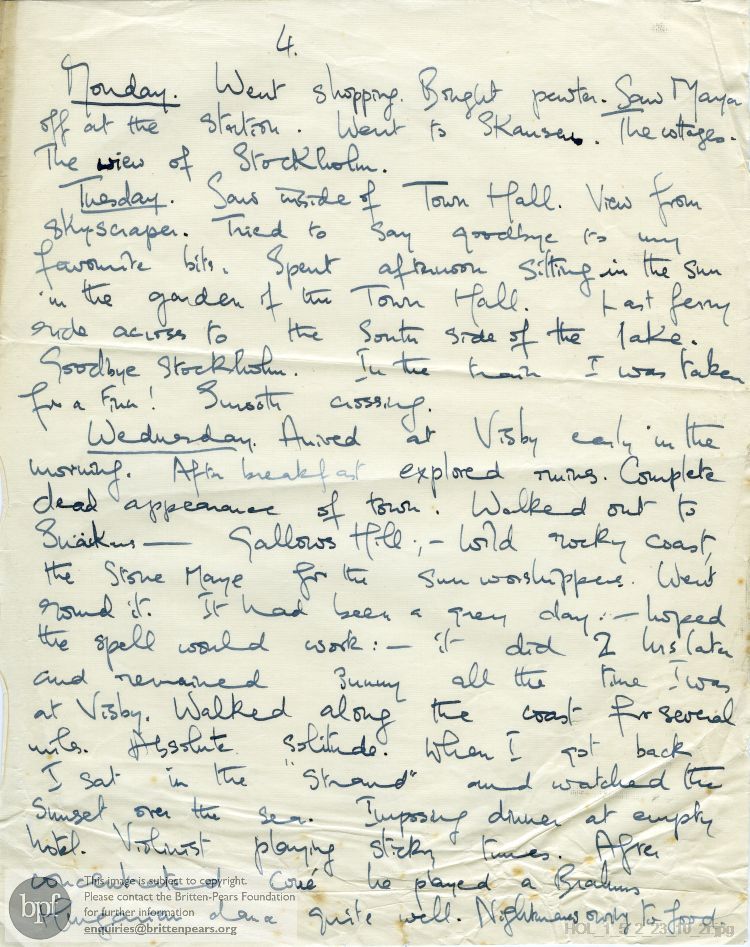 4.
Monday. Went shopping. Bought pewter. Saw Maya
off at the station. Went to Skansen. The cottages.
The view of Stockholm.
Tuesday. Saw inside of Town Hall. View from
skyscraper. Tried to say goodbye to my
favourite bits. Spent afternoon sitting in the sun
in the garden of the Town Hall. Last ferry
ride across to the South side of the lake.
Goodbye Stockholm. In the train I was taken
for a Finn! Smooth crossing.
Wednesday. Arrived at Visby early in the
morning. After breakfast explored ruins. Complete
dead appearance of town. Walked out to
— Gallows Hill; - wild rocky coast,
the Stone Maze for the sun worshippers. Went
round it. It had been a grey day: - hoped
the spell would work: - it did 2 hrs later
and remained sunny all the time I was
at Visby. Walked along the coast for several
mls. Absolute solitude. When I got back
I sat in the "Strand" and watched the
sunset over the sea. Imposing dinner at empty
hotel. Violinist playing sticky tunes. After
he played a Brahms
Hungarian dance quite well. Nightmares owing to food.
This image is subject to copyright.
Please contact the Britten-Pears Foundation
for further information
enquiries@brittenpears.org
bpf